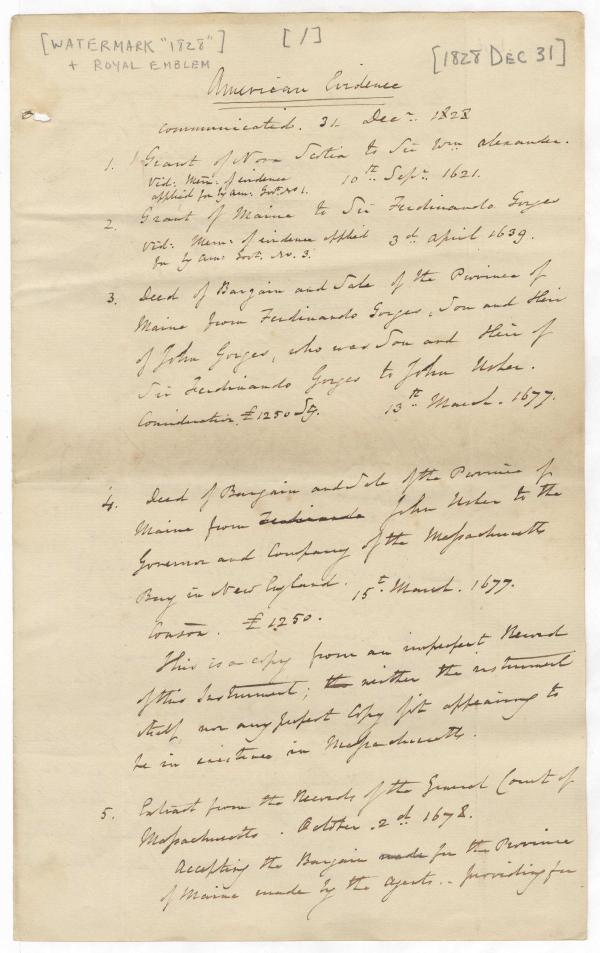 [WATERMARK "1828"]
+ ROYAL EMBLEM
[1]
[1828 DEC 31]
American Evidence
communicated. 31. Decr. 1828
1. Grant of Nova Scotia to Sir Wm. Alexander.
Vid: Mem: of evidence
applied for by Am: Govt. No 1.
10th. Sepr. 1621.
2. Grant of Maine to Sir Ferdinando Gorges
Vid: Mem: of evidence applied
for by Am: Govt. No. 3.
3d. April 1639.
3. Deed of Bargain and Sale of the Province of
Maine from Ferdinando Gorges, Son and Heir
of John Gorges, who was Son and Heir of
Sir Ferdinando Gorges to John Usher.
Consideration £1250 Stg. 13th March. 1677.
4. Deed of Bargain and Sale of the Province of
Maine from Ferdinando John Usher to the
Governor and Company of the Massachusetts
Bay in New England. 15t. March. 1677.
Conson. £1250.
This is a copy from an imperfect Record
of this Instrument; the neither the instrument
itself nor any perfect Copy of it appearing to
be in existence in Massachusetts.
5. Extract from the Records of the General Court of
Massachusetts. October. 2d. 1678.
Accepting the Bargain made for the Province
of Maine made by the agents.. providing for